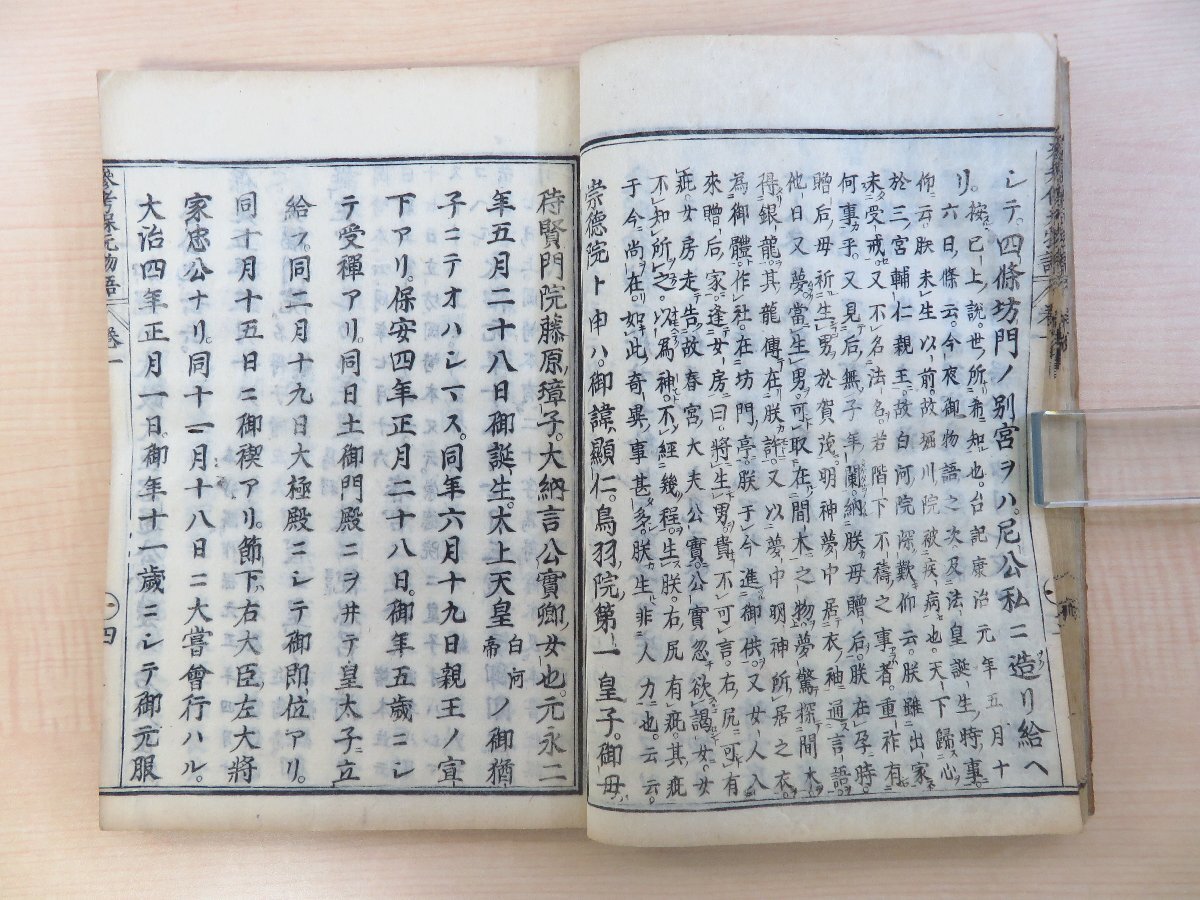 シテ。四條坊門ノ別宮ヲハ。尼公私ニ造リ給ヘ
リ。按已上ノ説。世ノ所希知也。台記康治元年五月十
六日ノ條云。今夜御物語之次及法皇誕生ノ時ノ事。
仰云。朕未生以前。故堀川院被疾病也。天下歸心
於三宮輔仁親王。故白河院深歎仰云。朕雖出家
未受戒。又不名法名。若陛下不禱之事者。重祚有
何事乎。又見后無子年闌。納朕母贈后。朕在孕時
贈后母祈生男於賀茂明神。夢中居衣袖通言語。
他日又夢當生男。可取在間木之物。夢驚探間木
得銀龍。其龍傳在朕許。又以夢中明神所居之衣
為御體作社。在坊門亭。朕于今進御供。又女人入
來贈后家。逢女房曰。將生男。貴不可言。右尻可有
疵。女房走告故春宮大夫公實。公實忽欲謁女。女
不知所之。以為神。不經幾程生朕。右尻有疵。其疵
于今尚在。如此奇異ノ事甚多。朕生非人力也云云。
崇德院ト申ハ。御諱顯仁。鳥羽院第一皇子。御母ハ
待賢門院藤原ノ璋子。大納言公實卿ノ女也。元永二
年五月二十八日御誕生。太上天皇白河帝ノ御猶
子ニテオハシマス。同年六月十九日親王ノ宣
下アリ。保安四年正月二十八日。御年五歳ニシ
テ受禪アリ。同日土御門殿ニヲ井テ皇太子ニ立
給フ。同二月十九日大極殿ニシテ御即位アリ。
同十月十五日ニ御禊アリ。節下ハ右大臣ノ左大將
家忠公ナリ。同十一月十八日ニ大嘗會行ハル。
大治四年正月一日。御年十一歳ニシテ御元服
參考保元物語 卷一
四